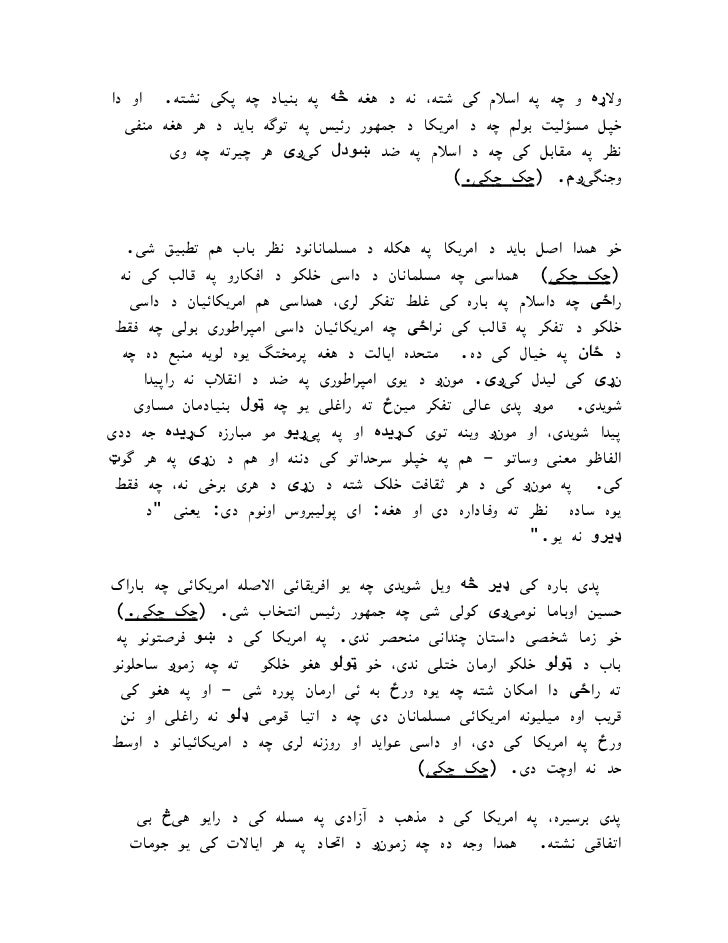 ولاړه و چه په اسلام کی شته، نه د هغه څه په بنیاد چه پکی نشته. او دا
خپل مسؤلیت بولم چه د امریکا د جمهور رئیس په توگه باید د هر هغه منفی
نظر په مقابل کی چه د اسلام په ضد ښودل کیږی هر چیرته چه وی
وجنگیږم. (چک چکی.)
خو همدا اصل باید د امریکا په هکله د مسلمانانود نظر باب هم تطبیق شی.
(چک چکی) همداسی چه مسلمانان د داسی خلکو د افکارو په قالب کی نه
راځی چه داسلام په باره کی غلط تفکر لری، همداسی هم امریکائیان د داسی
خلکو د تفکر په قالب کی نراځی چه امریکائیان داسی امپراطوری بولی چه فقط
د ځان په خیال کی ده. متحده ایالت د هغه پرمختگ یوه لویه منبع ده چه
نړی کی لیدل کیږی. مونږ د یوی امپراطوری په ضد د انقلاب نه راپیدا
شویدی. موږ پدی عالی تفکر مینځ ته راغلی یو چه ټول بنیادمان مساوی
پیدا شویدی، او مونږ وینه توی کړیده او په پیړیو مو مبارزه کړیده جه ددی
الفاظو معنی وساتو – هم په خپلو سرحداتو کی دننه او هم د نړی په هر گوټ
کی. په مونږ کی د هر ثقافت خلک شته د نړی د هری برخی نه، چه فقط
یوه ساده نظر ته وفاداره دی او هغه: ای پولیبروس اونوم دی: یعنی "د
ډیرو نه یو."
پدی باره کی ډیر څه ویل شویدی چه یو افریقائی الاصله امریکائی چه باراک
حسین اوباما نومیږی کولی شی چه جمهور رئیس انتخاب شی. (چک چکی.)
خو زما شخصی داستان چندانی منحصر ندی. په امریکا کی د ښو فرصتونو په
باب د ټولو خلکو ارمان ختلی ندی، خو ټولو هغو خلکو ته چه زموږ ساحلونو
ته راځی دا امکان شته چه یوه ورځ به ئی ارمان پوره شی – او په هغو کی
قریب اوه میلیونه امریکائی مسلمانان دی چه د اتیا قومی ډلو نه راغلی او نن
ورځ په امریکا کی دی، او داسی عواید او روزنه لری چه د امریکائیانو د اوسط
حد نه اوچت دی. (چک چکی)
پدی برسیره، په امریکا کی د مذهب د آزادی په مسله کی د رایو هیڅ بی
اتفاقی نشته. همدا وجه ده چه زمونږ د اتحاد په هر ایالات کی یو جومات